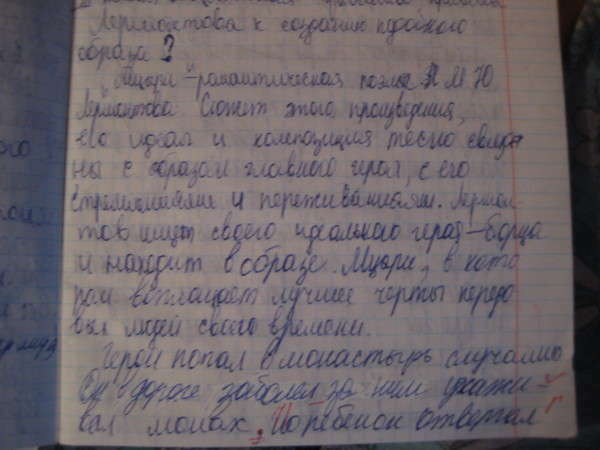 Лермонтова к созданию подобного
образа?
"Мцыри"-романтическая поэма М.Ю.
Лермонтова. Сюжет этого произведения,
его идеал и композиция тесно связа
ны с образом главного героя, с его
стремлениями и переживаниями. Лермон-
тов ищет своего идеального героя-борца
и находит в образе Мцыри, в кото
ром воплощает лучшее черты передо
вых людей своего времени.
Герой попал в монастырь случайно
дороге заболел за ним ухажи-
вал монах. Но ребенок отвергал